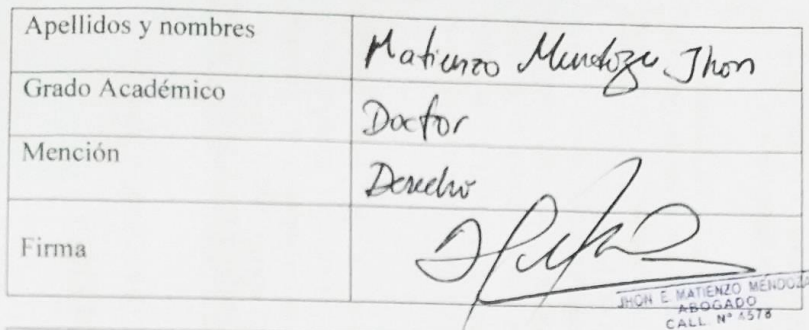 Apellidos y nombres
Matienzo Mendoza Jhon
Grado Académico
Doctor
Mención
Derecho
Firma
JHON E MATIENZO MENDOZA
ABOGADO
CALL Nº 4578